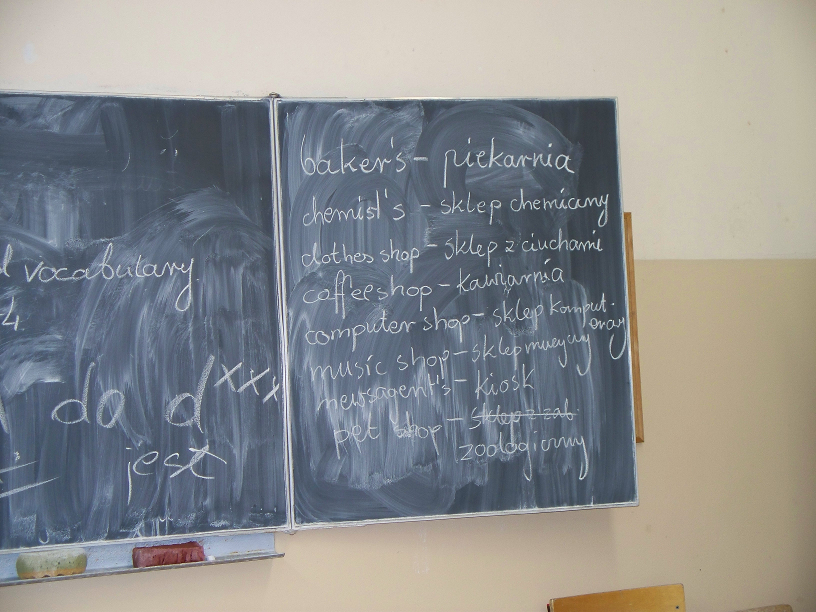 vocabulary
4.
da dxxx
= jest
baker's - piekarnia
chemist's - sklep chemiczny
clothes shop - sklep z ciuchami
coffeeshop - kawiarnia
computer shop - sklep komput.
erowy
music shop - sklep muzyczny
newsagent's - kiosk
pet shop - sklep z zab
zoologiczny